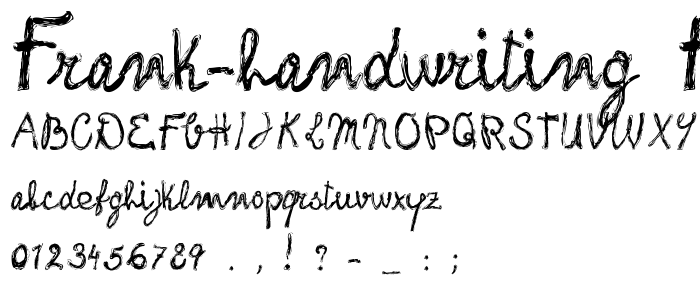 Frank-handwriting
ABCDEFGHIJKLMNOPQRSTUVWXY
abcdefghijklmnopqrstuvwxyz
0123456789 . , ! ? - _ : ;